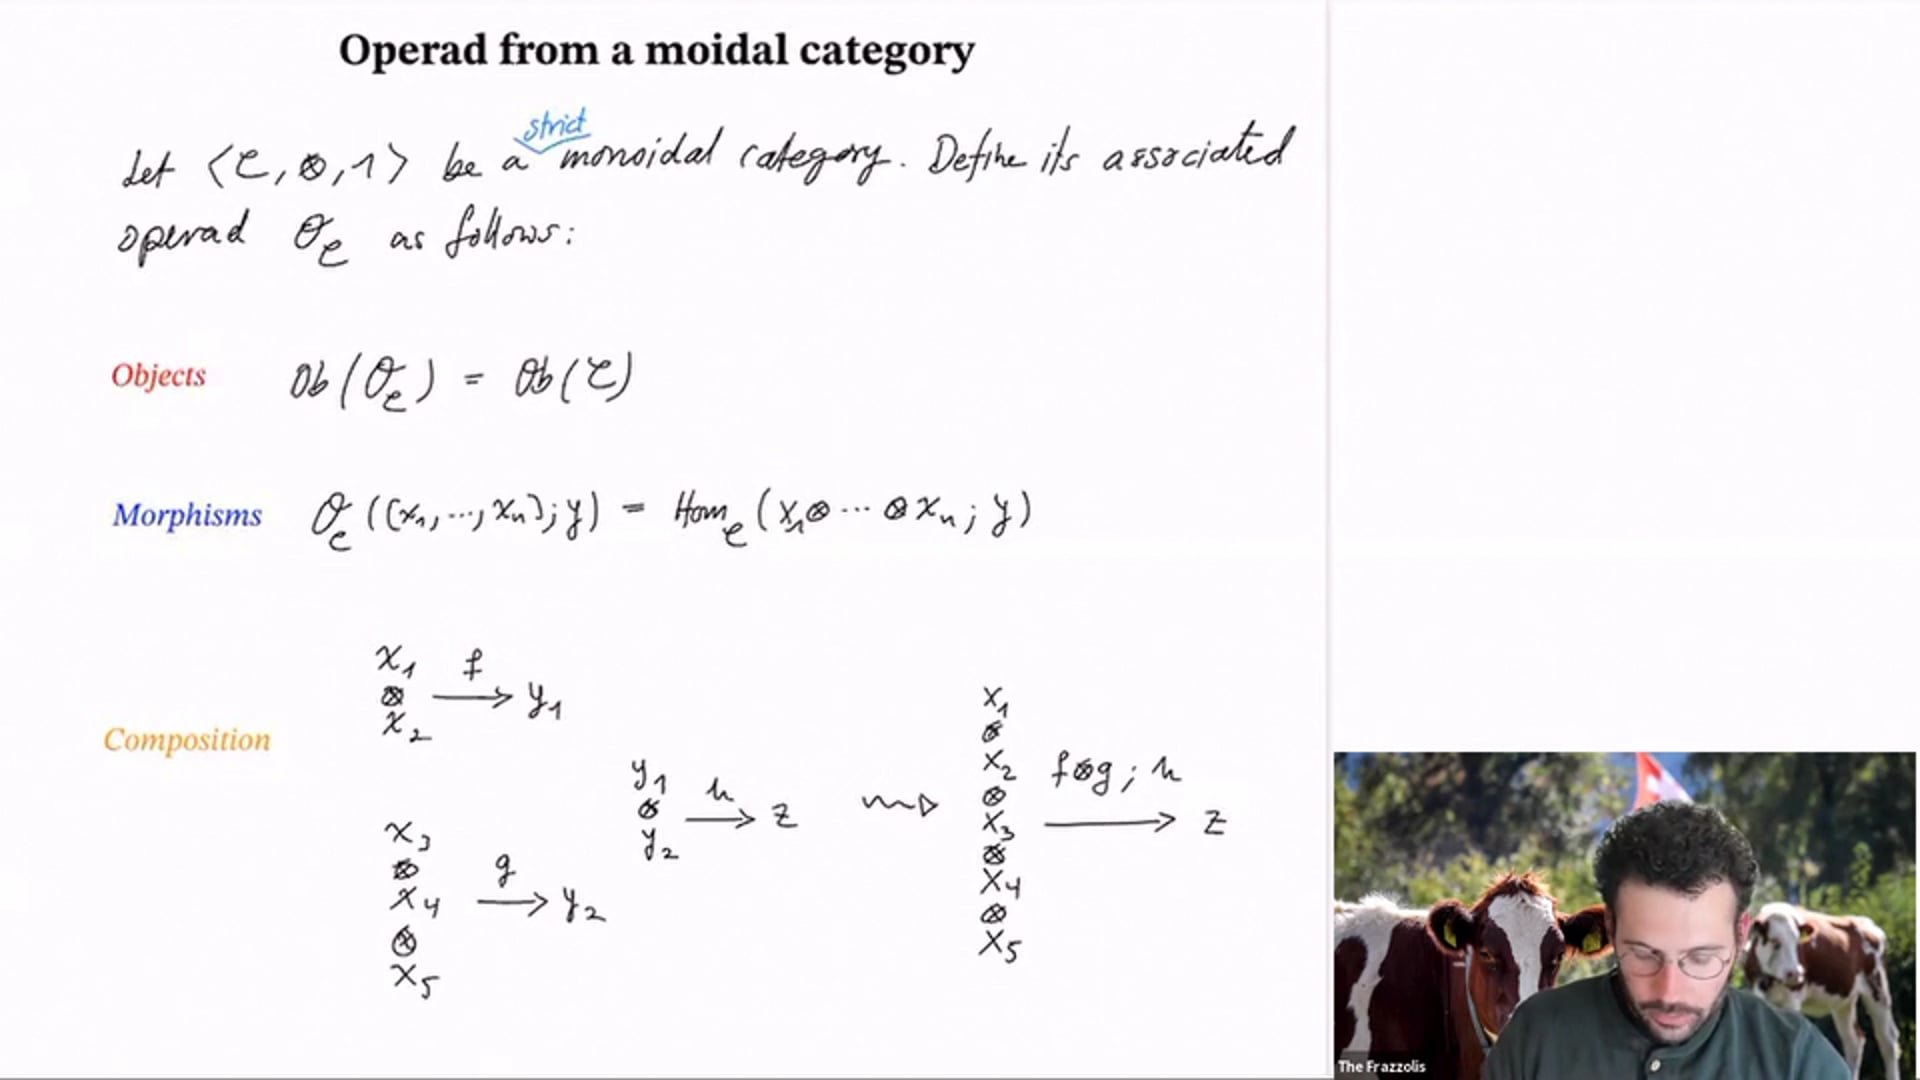 Operad from a moidal category
strict
Let ⟨C, ⊗, 1⟩ be a monoidal category. Define its associated
operad O_C as follows:
Objects Ob(O_C) = Ob(C)
Morphisms O_C((x₁, ..., xₙ); y) = Hom_C(x₁⊗ ··· ⊗xₙ; y)
Composition
x₁ ⊗ x₂ f → y₁
x₃ ⊗ x₄ ⊗ x₅ g → y₂
y₁ ⊗ y₂ h → z
⇝
x₁ ⊗ x₂ ⊗ x₃ ⊗ x₄ ⊗ x₅ f⊗g ; h → z
The Frazzolis